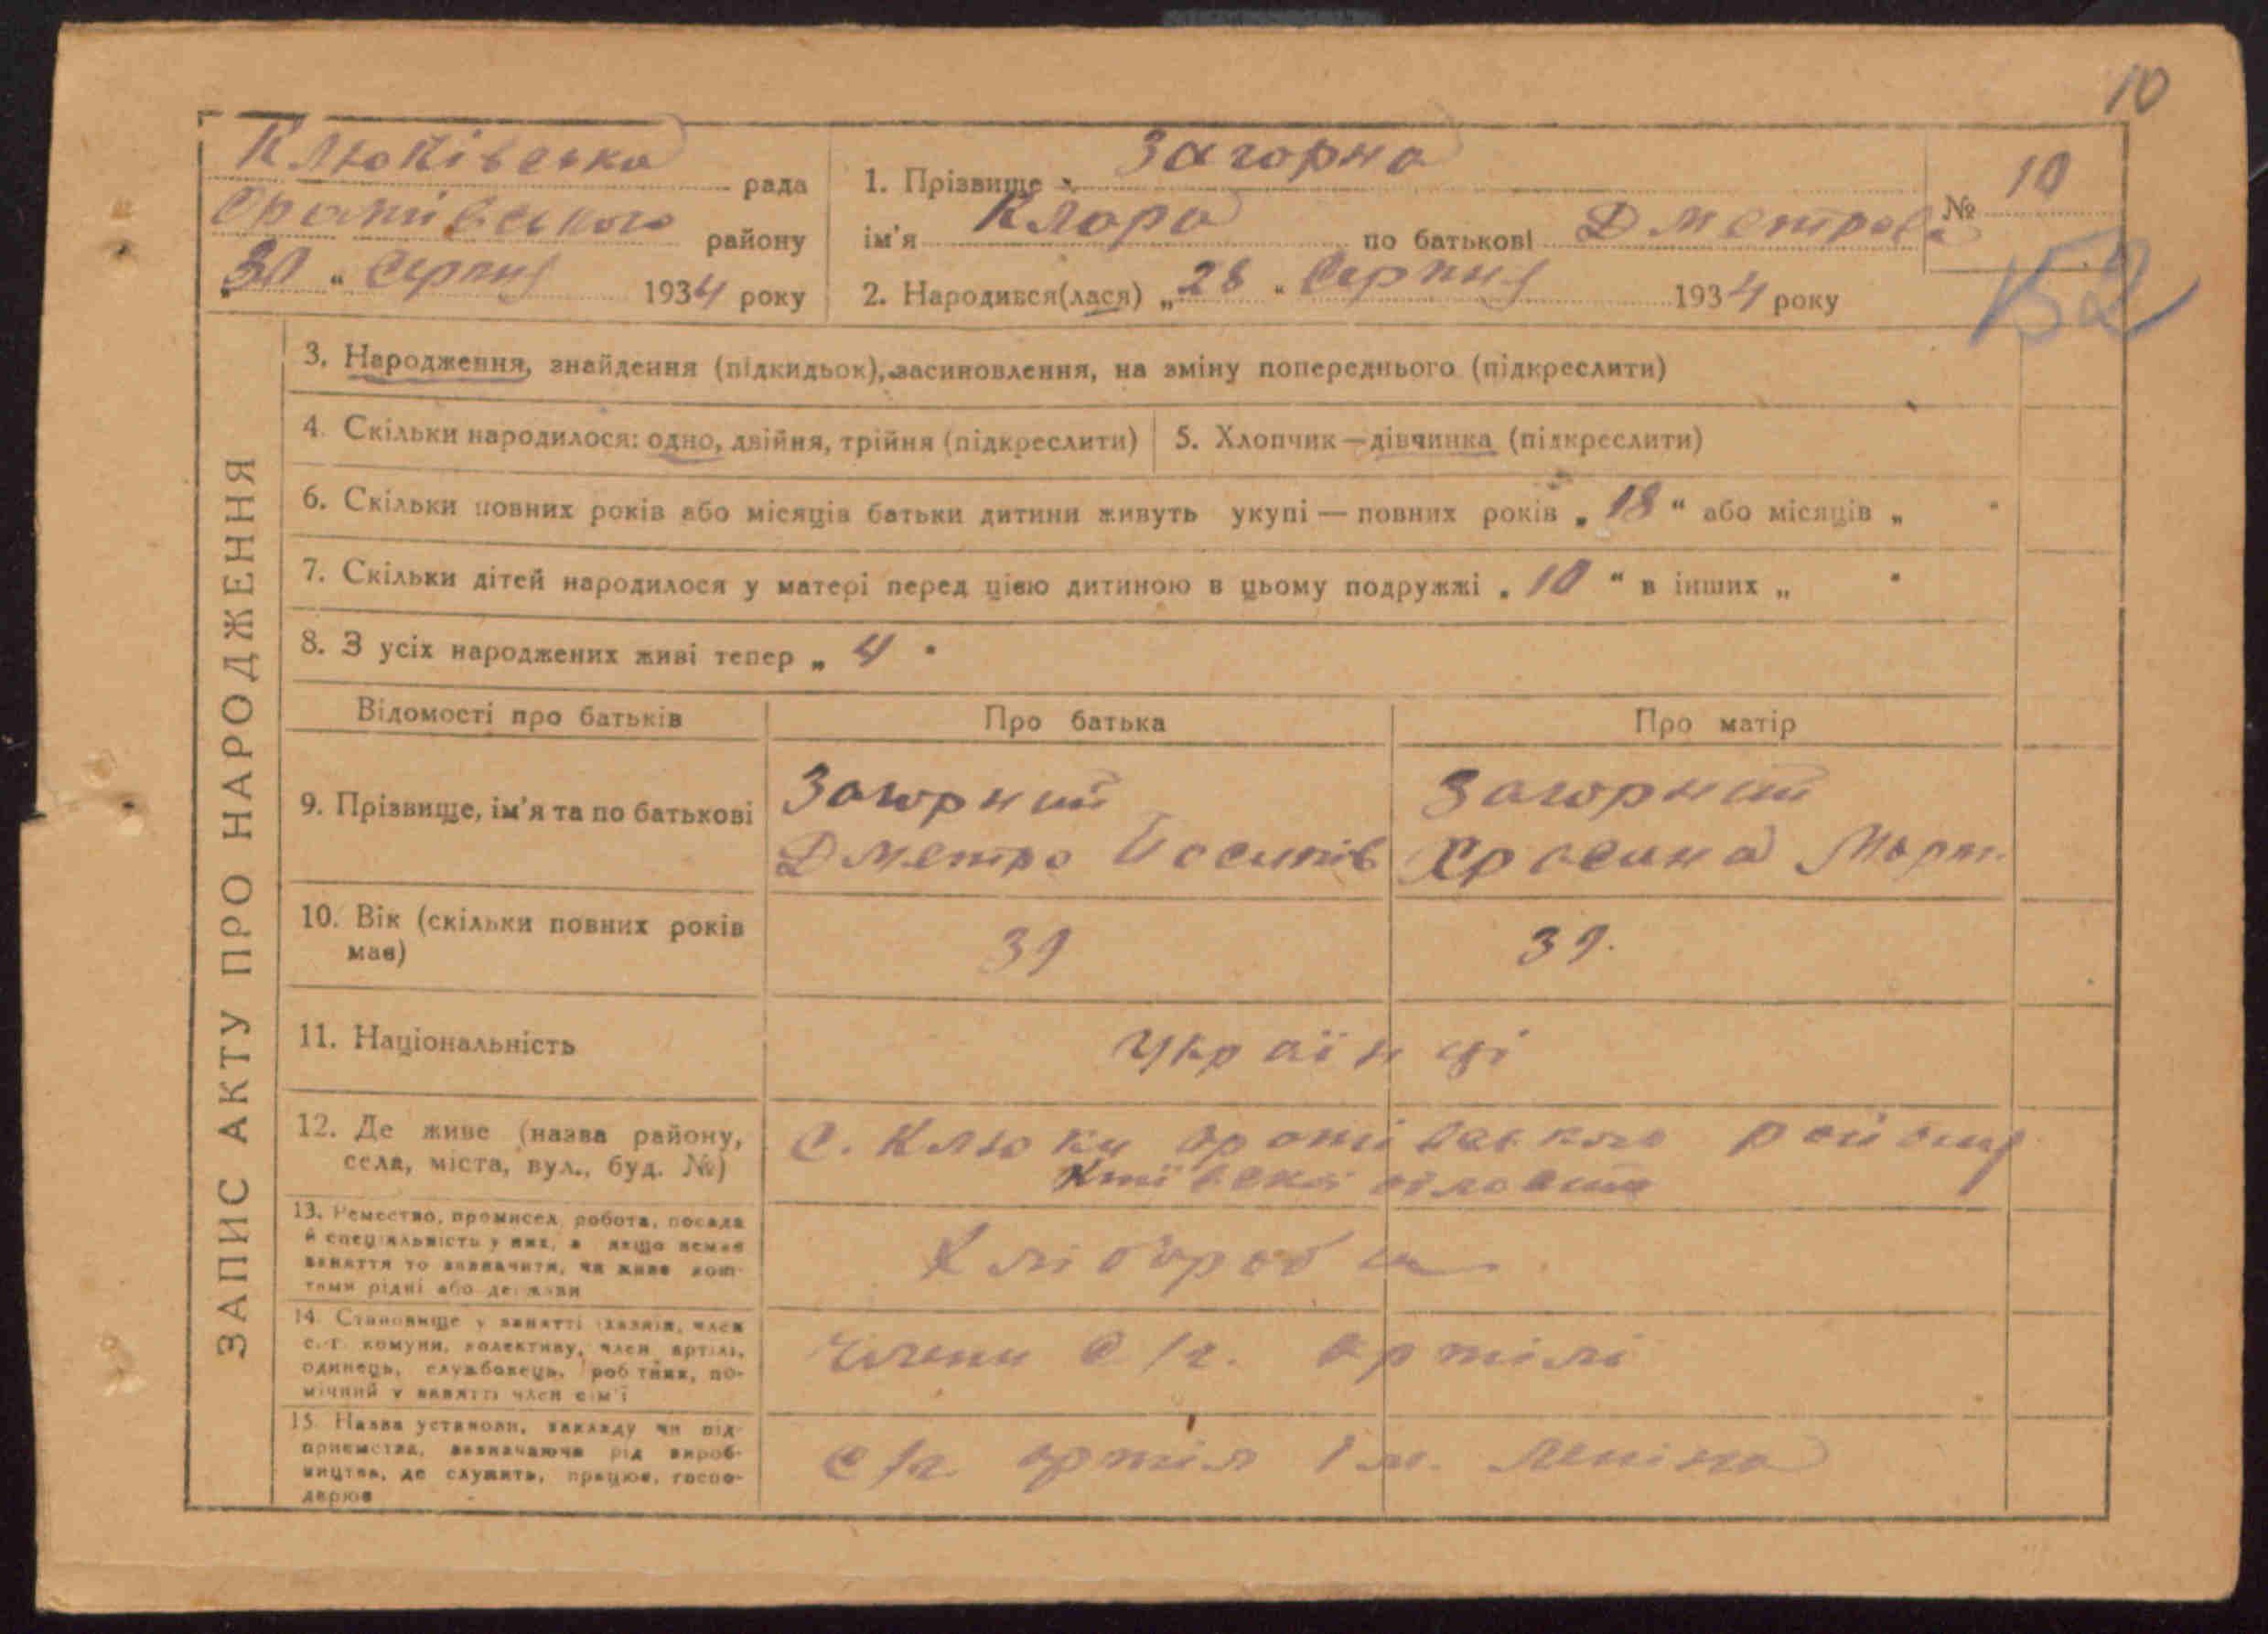 10
Клюківська рада
Оратівського району
„30“ Серпня 1934 року
1. Прізвище Загорна
ім'я Клара по батькові Дметров
№ 10
52
2. Народився(лася) „28“ Серпня 1934 року
ЗАПИС АКТУ ПРО НАРОДЖЕННЯ
3. Народження, знайдення (підкидьок), засиновлення, на зміну попереднього (підкреслити)
4. Скільки народилося: одно, двійня, трійня (підкреслити)
5. Хлопчик—дівчинка (підкреслити)
6. Скільки повних років або місяців батьки дитини живуть укупі — повних років „18“ або місяців „ “
7. Скільки дітей народилося у матері перед цією дитиною в цьому подружжі „10“ в інших „ “
8. З усіх народжених живі тепер „4“
Відомості про батьків Про батька Про матір
9. Прізвище, ім'я та по батькові
Загорний
Дметро Йосипів
Загорний
Март.
10. Вік (скільки повних років
має)
39
39.
11. Національність
Українці
12. Де живе (назва району,
села, міста, вул., буд. №)
с. Клюки Оратівського району
Київської області
13. Ремество, промисел, робота, посада
й спеціяльність у них, а якщо немає
заняття то визначити, чи живе кош-
тами рідні або держави
Хлібороби
14. Становище у занятті (хазяїн, член
с.-г. комуни, колективу, член артілі,
одинець, службовець, робітник, по-
мічний у занятті член сім'ї
Члени с/г. артілі
15. Назва установи, закладу чи під-
приємства, визначаючи рід вироб-
ництва, де служить, працює, госпо-
дарює
с/г. артіль ім. Леніна